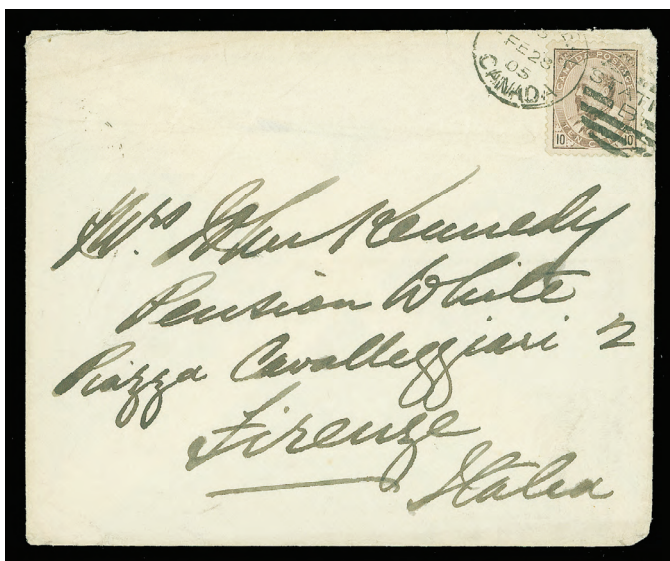 FE 28
05
CANADA
CANADA POSTAGE
10 10
TEN
Mrs John Kennedy
Pension White
Piazza Cavalleggiari 2
Firenze
Italia